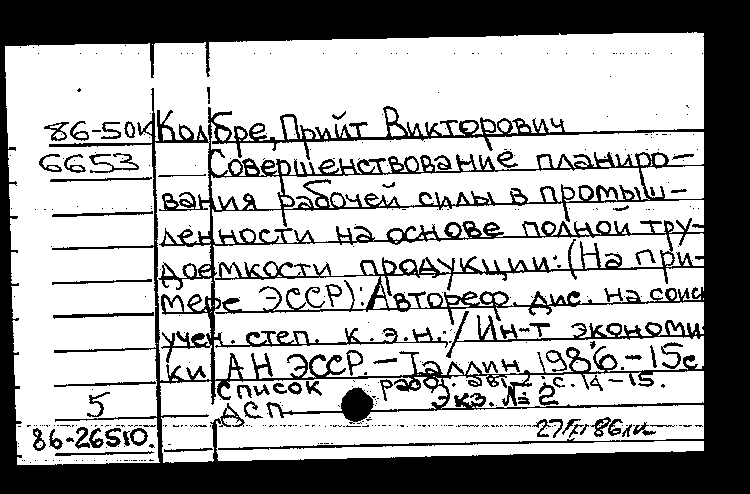 86-50к Колбре, Прийт Викторович
6653 Совершенствование планиро-
вания рабочей силы в промыш-
ленности на основе полной тру-
доемкости продукции: (На при-
мере ЭССР): Автореф. дис. на соиск
учен. степ. к.э.н.; / Ин-т экономи-
ки АН ЭССР. - Таллин, 1986. - 15с.
Список работ. авт.: с. 14-15.
5 ДСП Экз. № 2
86-26510.